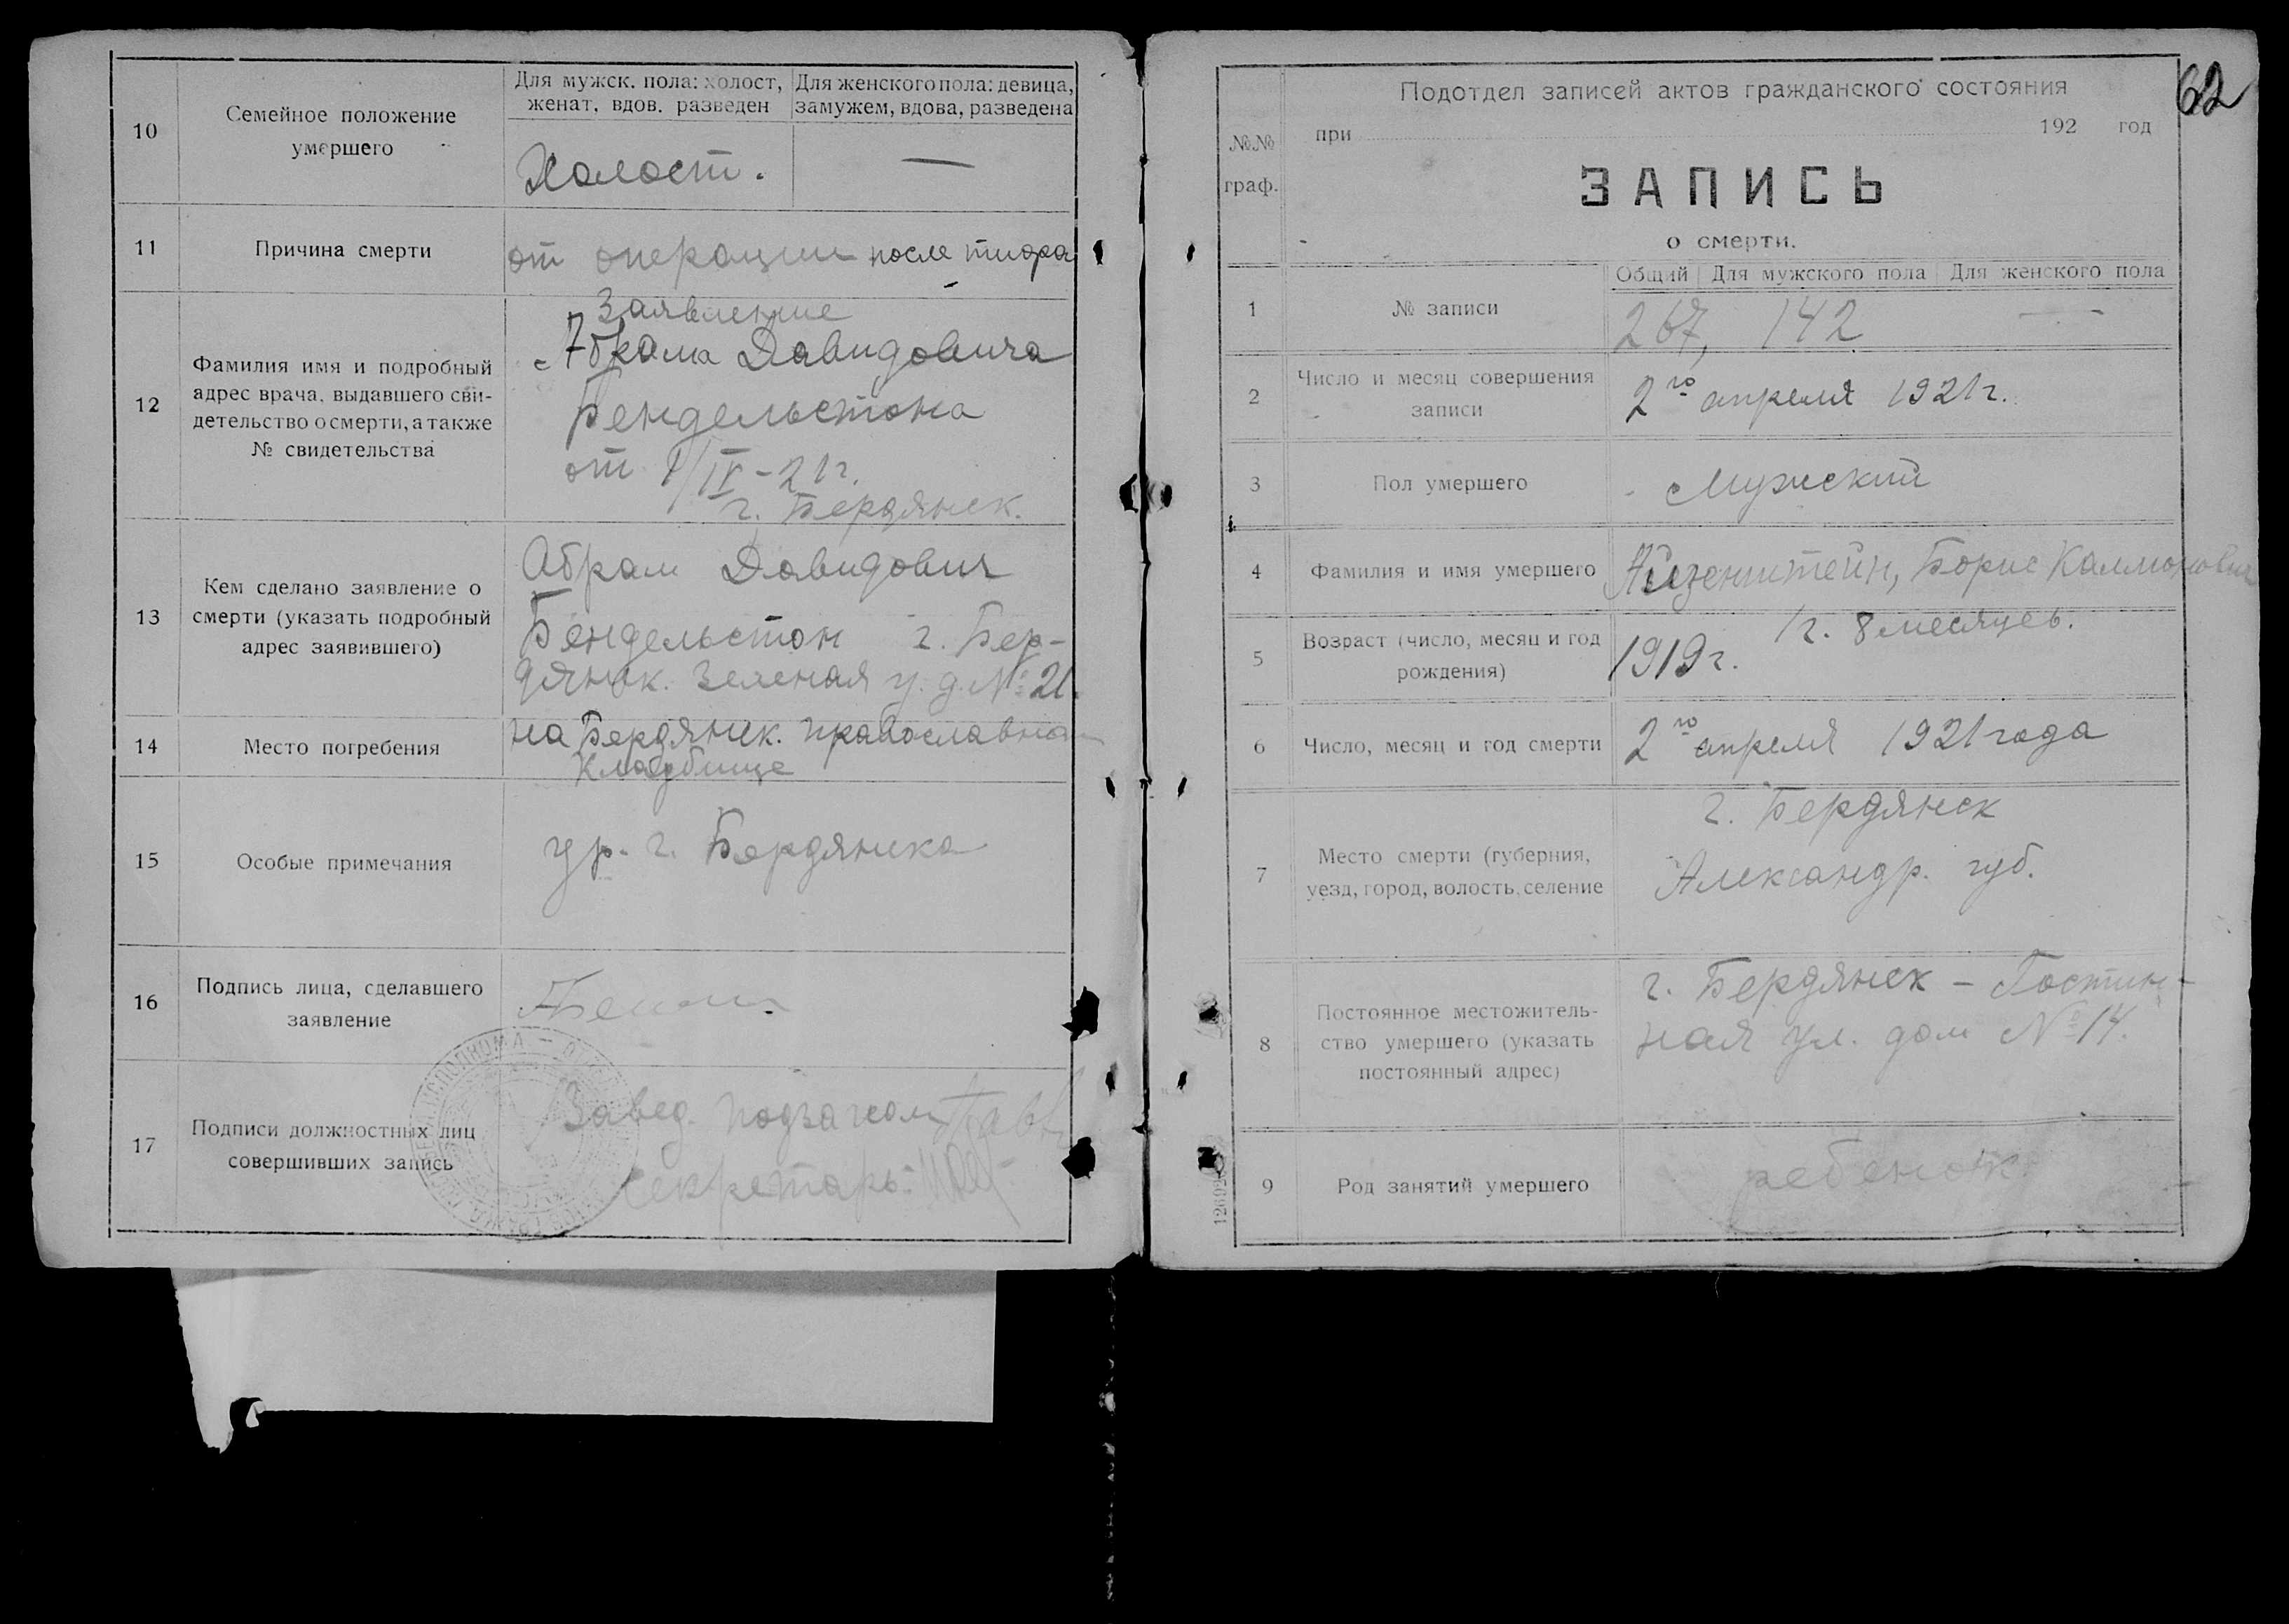 10
Семейное положение
умершего
Для мужск. пола: холост,
женат, вдов. разведен
Для женского пола: девица,
замужем, вдова, разведена
Холост.
—
11
Причина смерти
от операции после тифа
12
Фамилия имя и подробный
адрес врача, выдавшего сви-
детельство о смерти, а также
№ свидетельства
Заявление
Абрама Давидовича
Бендельстона
от 1/IV-21г.
г. Бердянск.
13
Кем сделано заявление о
смерти (указать подробный
адрес заявившего)
Абрам Давидович
Бендельстон г. Бер-
дянск. Зеленая у. д. № 21.
14
Место погребения
на Бердянск. православна
кладбище
15
Особые примечания
ур. г. Бердянска
16
Подпись лица, сделавшего
заявление
17
Подписи должностных лиц
совершивших запись
Завед. подзагсом
Секретарь:
62
№№
граф.
Подотдел записей актов гражданского состояния
при 192 год
ЗАПИСЬ
о смерти.
Общий Для мужского пола Для женского пола
1
№ записи
267, 142 —
2
Число и месяц совершения
записи
2го апреля 1921г.
3
Пол умершего
Мужский
4
Фамилия и имя умершего
Айзенштейн, Борис Калманович
5
Возраст (число, месяц и год
рождения)
1г. 8 месяцев.
1919г.
6
Число, месяц и год смерти
2го апреля 1921 года
7
Место смерти (губерния,
уезд, город, волость, селение
г. Бердянск
Александр. губ.
8
Постоянное местожитель-
ство умершего (указать
постоянный адрес)
г. Бердянск - Гостин-
ная ул. дом № 14.
9
Род занятий умершего
ребенок.